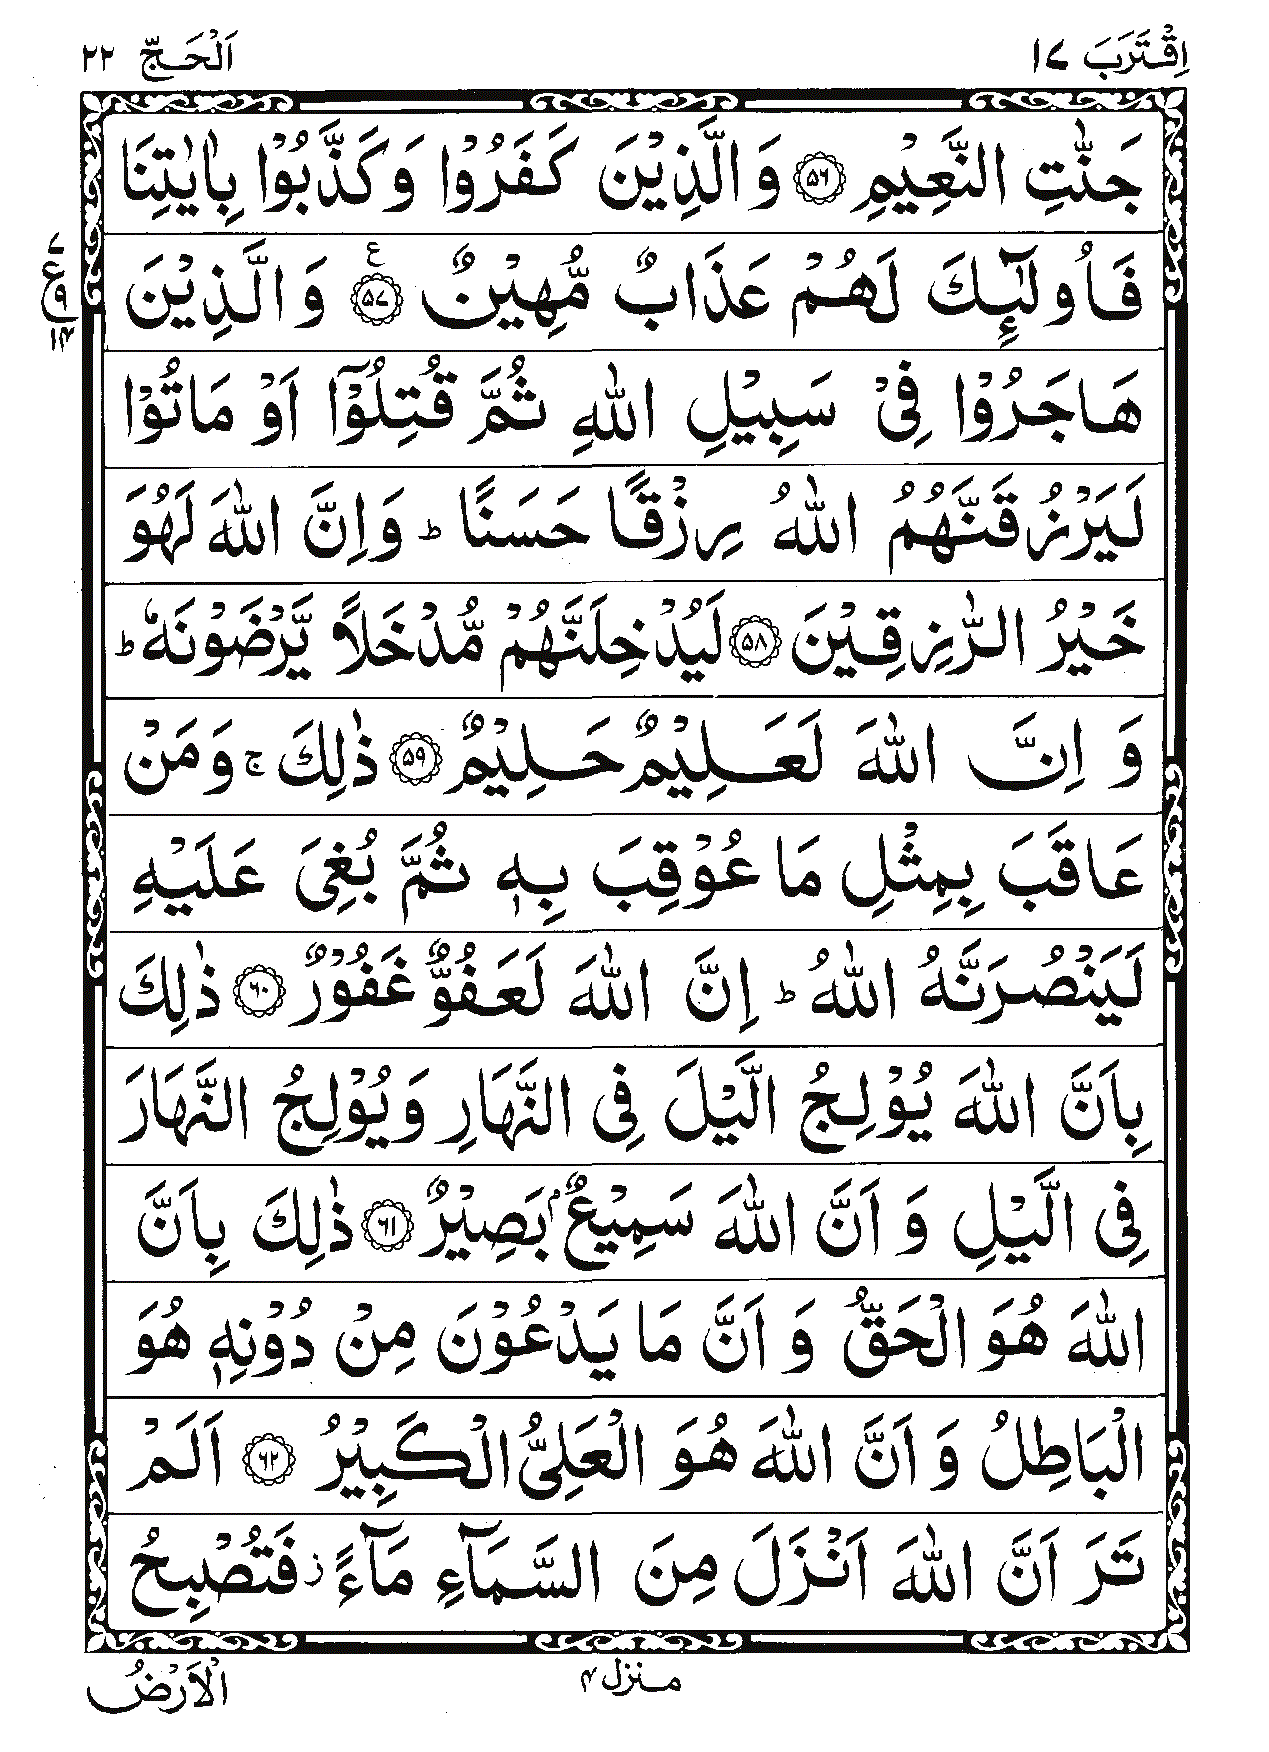 اِقْتَرَبَ ١٧
اَلْحَجّ ٢٢
جَنّٰتِ النَّعِيْمِ ﴿۵۶﴾ وَ الَّذِيْنَ كَفَرُوْا وَ كَذَّبُوْا بِاٰيٰتِنَا
فَاُولٰٓئِكَ لَهُمْ عَذَابٌ مُّهِيْنٌ ﴿۵۷﴾ ع وَ الَّذِيْنَ
ع ٧ ٩ ١٤
هَاجَرُوْا فِىْ سَبِيْلِ اللّٰهِ ثُمَّ قُتِلُوْٓا اَوْ مَاتُوْا
لَيَرْزُقَنَّهُمُ اللّٰهُ رِزْقًا حَسَنًا ؕ وَ اِنَّ اللّٰهَ لَهُوَ
خَيْرُ الرّٰزِقِيْنَ ﴿۵۸﴾ لَيُدْخِلَنَّهُمْ مُّدْخَلًا يَّرْضَوْنَهٗ ؕ
وَ اِنَّ اللّٰهَ لَعَلِيْمٌ حَلِيْمٌ ﴿۵۹﴾ ذٰلِكَ ۚ وَ مَنْ
عَاقَبَ بِمِثْلِ مَا عُوْقِبَ بِهٖ ثُمَّ بُغِىَ عَلَيْهِ
لَيَنْصُرَنَّهُ اللّٰهُ ؕ اِنَّ اللّٰهَ لَعَفُوٌّ غَفُوْرٌ ﴿۶۰﴾ ذٰلِكَ
بِاَنَّ اللّٰهَ يُوْلِجُ الَّيْلَ فِى النَّهَارِ وَ يُوْلِجُ النَّهَارَ
فِى الَّيْلِ وَ اَنَّ اللّٰهَ سَمِيْعٌۢ بَصِيْرٌ ﴿۶۱﴾ ذٰلِكَ بِاَنَّ
اللّٰهَ هُوَ الْحَقُّ وَ اَنَّ مَا يَدْعُوْنَ مِنْ دُوْنِهٖ هُوَ
الْبَاطِلُ وَ اَنَّ اللّٰهَ هُوَ الْعَلِىُّ الْكَبِيْرُ ﴿۶۲﴾ اَلَمْ
تَرَ اَنَّ اللّٰهَ اَنْزَلَ مِنَ السَّمَآءِ مَآءً ؗ فَتُصْبِحُ
منزل ٤
الْاَرْضُ